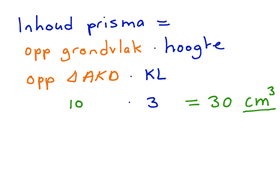 Inhoud prisma =
opp grondvlak · hoogte
opp △AKD · KL
10 · 3 = 30 cm³